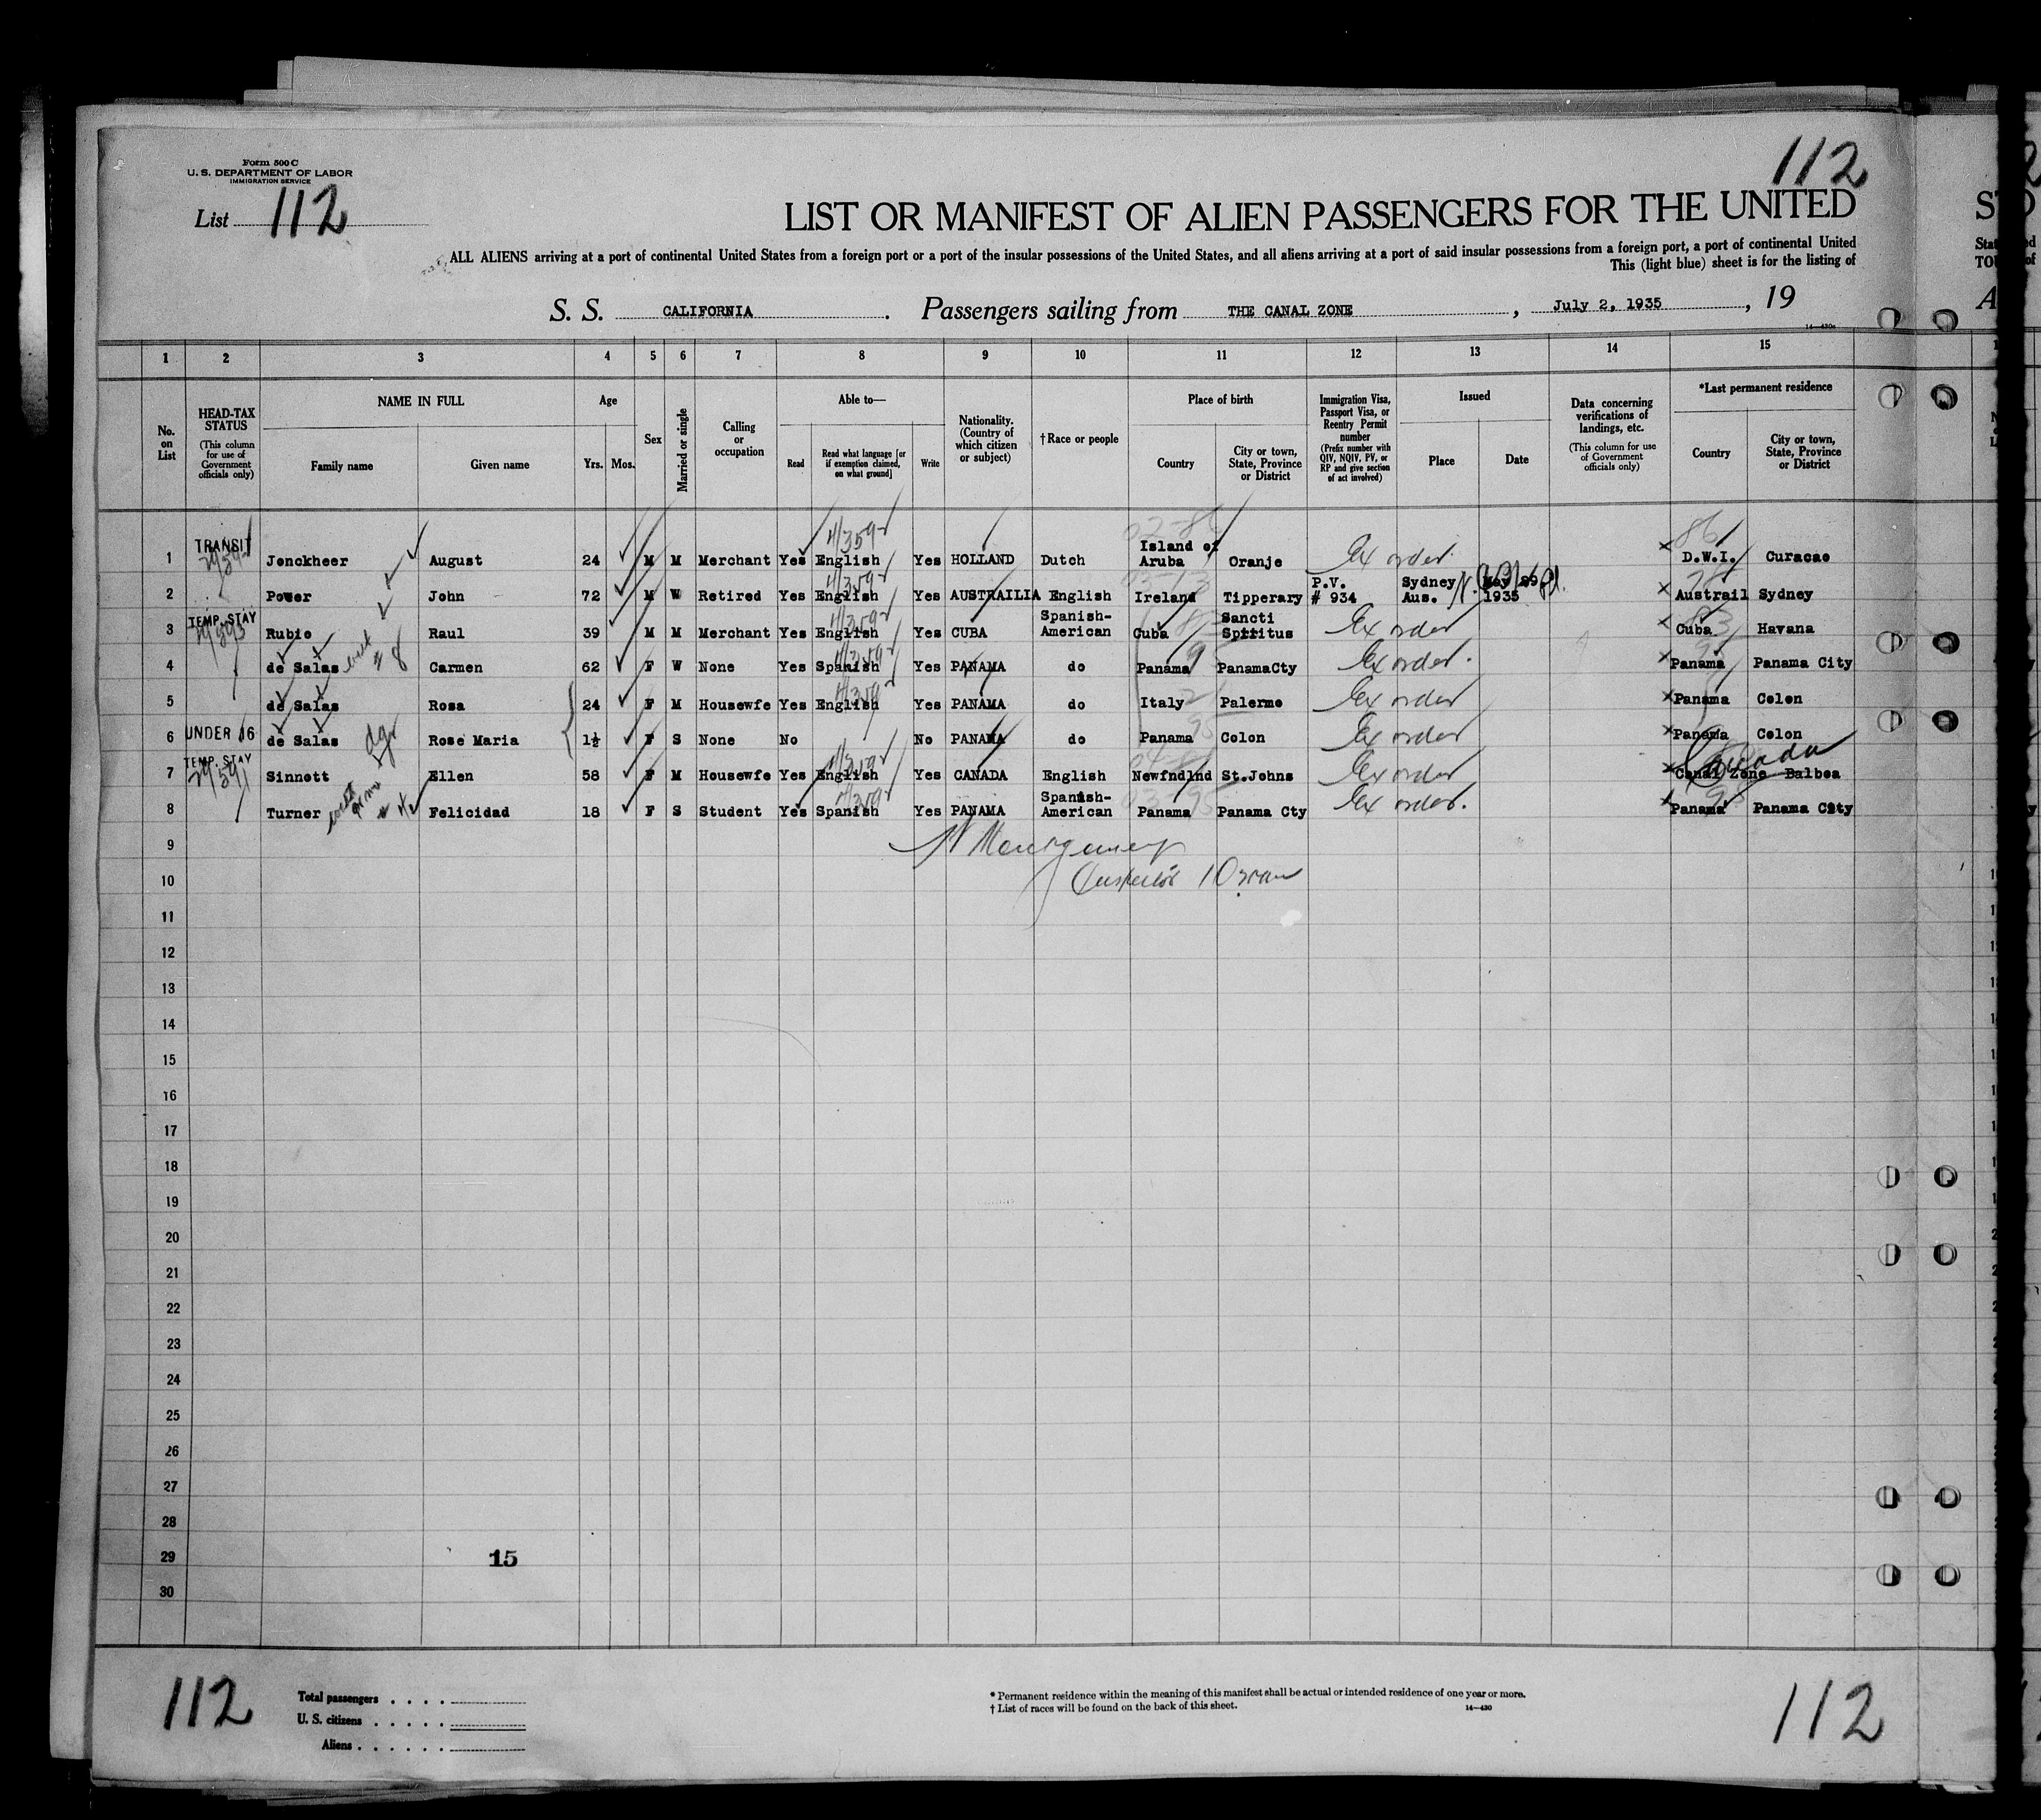 Form 500 C
U. S. DEPARTMENT OF LABOR
IMMIGRATION SERVICE
List 112
112
LIST OR MANIFEST OF ALIEN PASSENGERS FOR THE UNITED
ALL ALIENS arriving at a port of continental United States from a foreign port or a port of the insular possessions of the United States, and all aliens arriving at a port of said insular possessions from a foreign port, a port of continental United
This (light blue) sheet is for the listing of
S. S. CALIFORNIA. Passengers sailing from THE CANAL ZONE, July 2, 1935, 19
1 2 3 4 5 6 7 8 9 10 11 12 13 14 15
No. on List
HEAD-TAX STATUS (This column for use of Government officials only)
NAME IN FULL
Family name Given name
Age
Yrs. Mos.
Sex
Married or single
Calling or occupation
Able to—
Read
Read what language [or if exemption claimed, on what ground]
Write
Nationality. (Country of which citizen or subject)
†Race or people
Place of birth
Country
City or town, State, Province or District
Immigration Visa, Passport Visa, or Reentry Permit number (Prefix number with QIV, NQIV, PV, or RP and give section of act involved)
Issued
Place Date
Data concerning verifications of landings, etc. (This column for use of Government officials only)
*Last permanent residence
Country
City or town, State, Province or District
1 TRANSIT Jonckheer August 24 M M Merchant Yes English Yes HOLLAND Dutch Island of Aruba Oranje Ex order D.W.I. Curacao
2 Power John 72 M W Retired Yes English Yes AUSTRAILIA English Ireland Tipperary P.V. # 934 Sydney Aus. May 29 1935 Austrail Sydney
3 TEMP. STAY Rubio Raul 39 M M Merchant Yes English Yes CUBA Spanish-American Cuba Sancti Spiritus Ex order Cuba Havana
4 de Salas Carmen 62 F W None Yes Spanish Yes PANAMA do Panama PanamaCty Ex order. Panama Panama City
5 de Salas Rosa 24 F M Housewfe Yes English Yes PANAMA do Italy Palermo Ex order Panama Colon
6 UNDER 16 de Salas Rose Maria 1½ F S None No No PANAMA do Panama Colon Ex order Panama Colon
7 TEMP. STAY Sinnott Ellen 58 F M Housewfe Yes English Yes CANADA English Newfndlnd St.Johns Ex order Canal Zone Balboa Canada
8 Turner Felicidad 18 F S Student Yes Spanish Yes PANAMA Spanish-American Panama Panama Cty Ex order. Panama Panama City
9
10
11
12
13
14
15
16
17
18
19
20
21
22
23
24
25
26
27
28
29 15
30
112
Total passengers
U. S. citizens
Aliens
* Permanent residence within the meaning of this manifest shall be actual or intended residence of one year or more.
† List of races will be found on the back of this sheet.
14—430
112